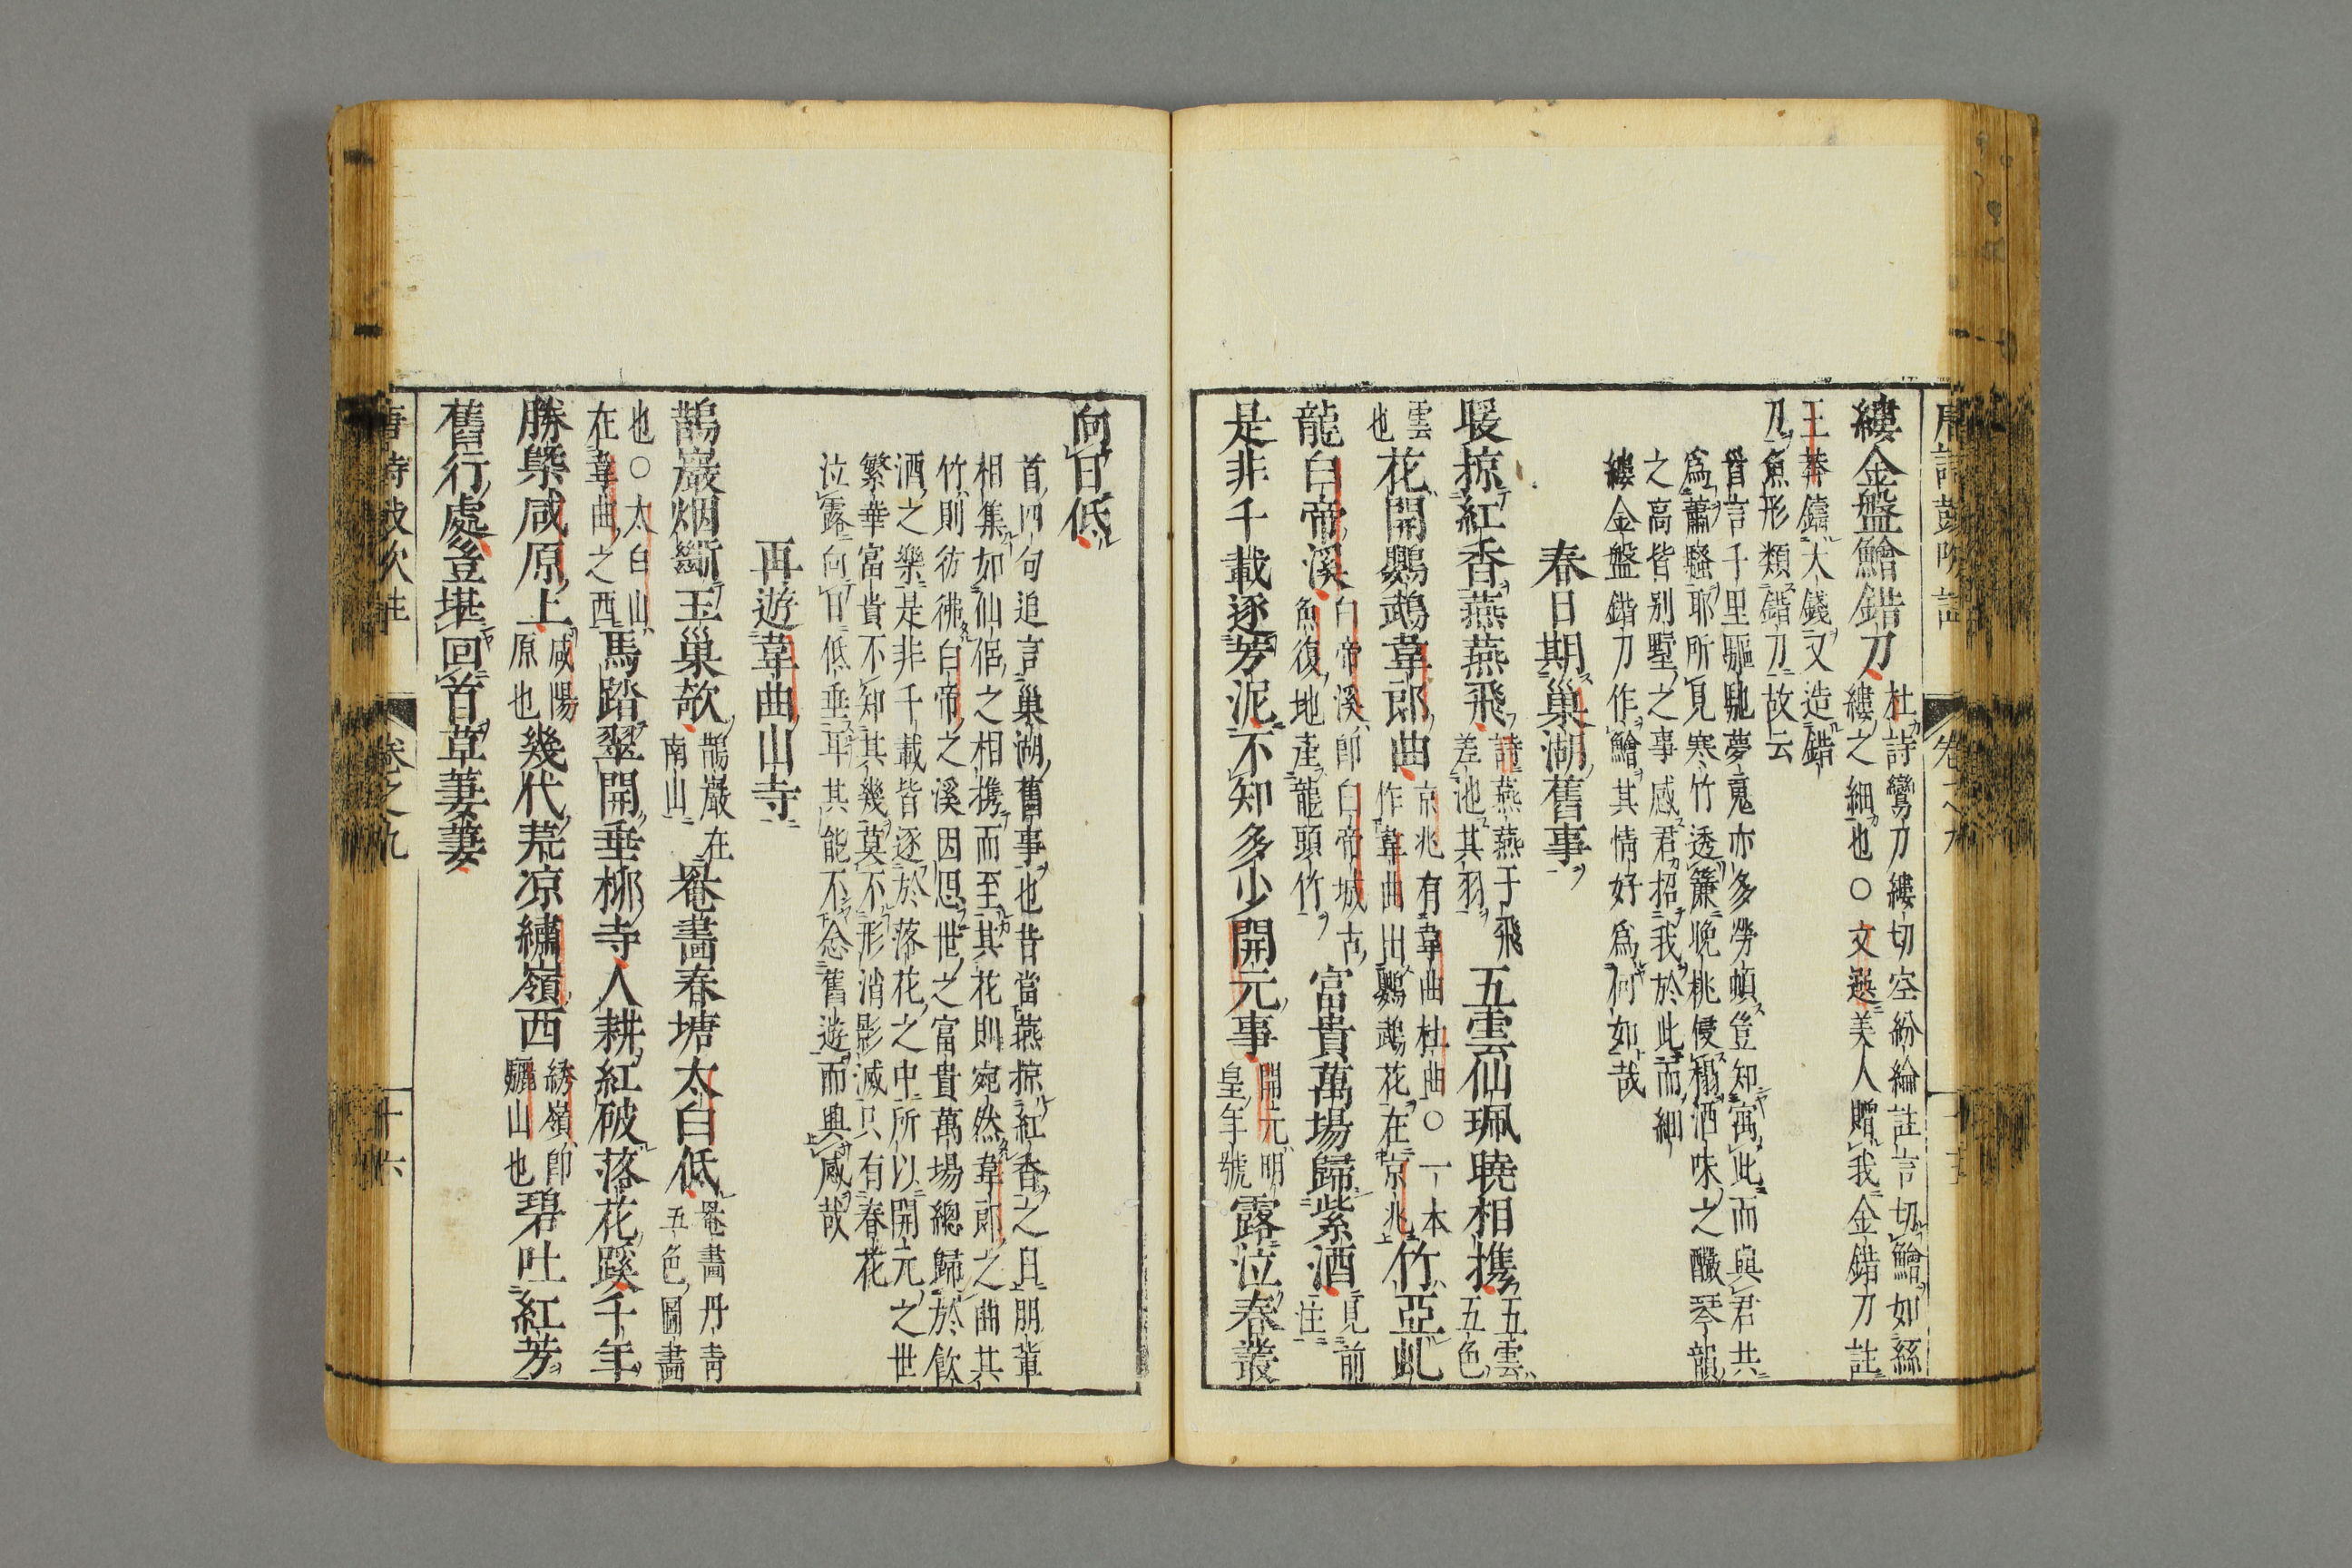 縷金盤鱠錯刀杜詩鸞刀縷切空紛綸註言切鱠如絲縷之細也○文選美人贈我金錯刀註
王莽鑄大錢又造錯刀魚形類錯刀故云
首言千里驅馳夢䰟亦多勞頓豈知寓此而與君共
爲蕭騷耶所見寒竹透簾晚桃侵榻酒味之釅琴韻
之高皆别墅之事感君招我於此而細
縷金盤錯刀作鱠其情好爲何如哉
春日期巢湖舊事
暖掠紅香燕燕飛詩燕燕于飛差池其羽五雲仙珮曉相擕五雲五色
雲也花開鸚鵡韋郎曲京兆有韋曲杜曲○一本作韋曲出鸚鵡花在京兆竹亞虬
龍白帝溪白帝溪即白帝城古魚復地産龍頭竹富貴萬場歸紫酒見前注
是非千載逐芳泥不知多少開元事開元明皇年號露泣春叢
向日低
首四句追言巢湖舊事也昔當燕掠紅香之日朋輩
相集如仙侶之相擕而至其花則宛然韋郎之曲其
竹則彷彿白帝之溪因思世之富貴萬場總歸於飮
酒之樂是非千載皆逐於落花之中所以開元之世
繁華富貴不知其幾莫不形消影滅只有春花
泣露向日低垂耳其能不念舊遊而興感哉
再遊韋曲山寺
鵲巖烟斷玉巢欹鵲巖在南山罨畵春塘太白低罨畵丹靑五色圖畵
也○太白山在韋曲之西馬踏翠開垂栁寺人耕紅破落花蹊千年
勝槩咸原上咸陽原也幾代荒凉繡嶺西綉嶺卽驪山也碧吐紅芳
舊行處豈堪回首草萋萋
唐詩鼓吹註 卷之九 十六